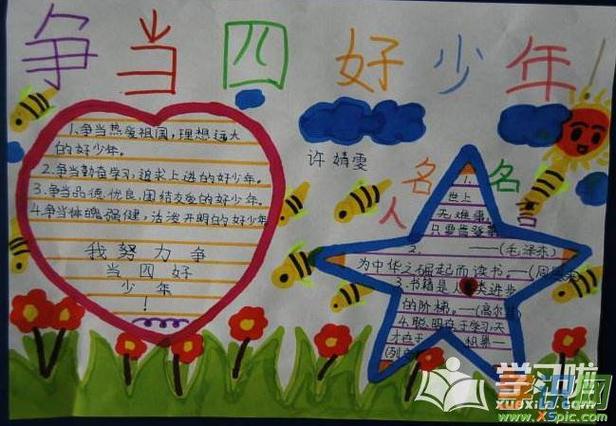 争当四好少年!
许婧雯
1、争当热爱祖国,理想远大
的好少年。
2.争当勤奋学习,追求上进的好少年。
3.争当品德优良,团结友爱的好少年。
4.争当体魄强健,活泼开朗的好少年
我努力争
当四好
少年
!
名人名言
1.
世上
无难事
只要肯登攀
2. ——(毛泽东)
为中华之崛起而读书。—(周恩来
3.书籍是人类进步
的阶梯。—(高尔基
4.聪明在于学习,天
才在于 积累—
列
学习啦
xuexila.com
www.XSpic.com